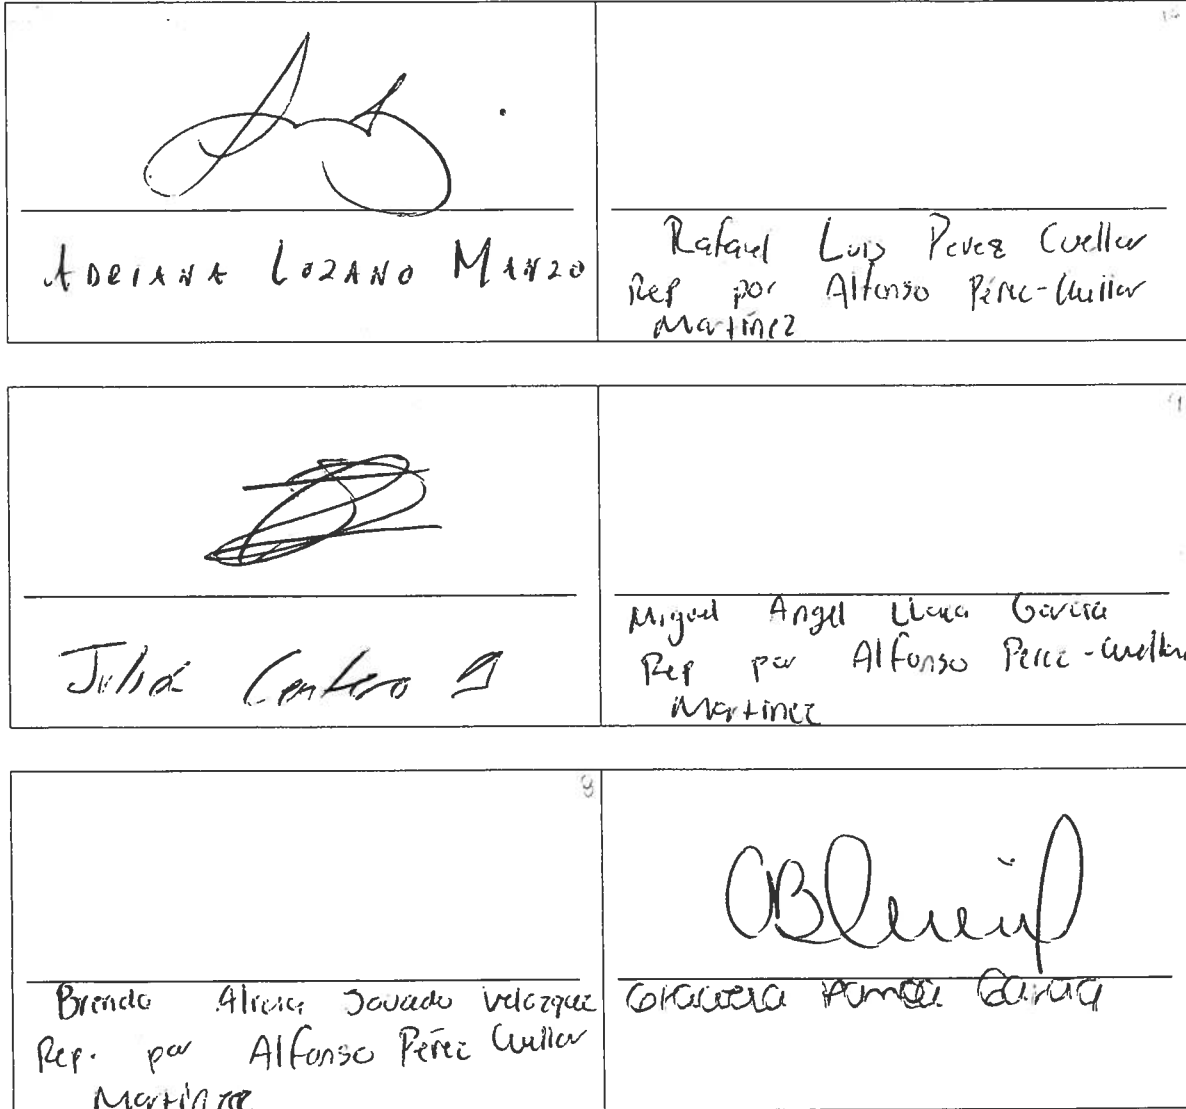 ADRIANA LOZANO MANZO
Rafael Luis Perez Cuellar
Rep por Alfonso Pérez-Cuellar
Martínez
Julia Centeno
Miguel Angel Llaca García
Rep por Alfonso Perez-Cuellar
Martinez
8
Brenda Alicia Velazquez
Rep. por Alfonso Pérez Cuellar
Martinez
Garcia